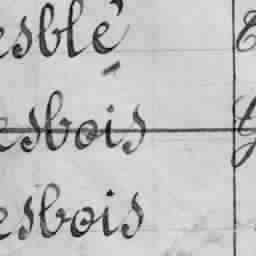 esblé
esbois
esbois